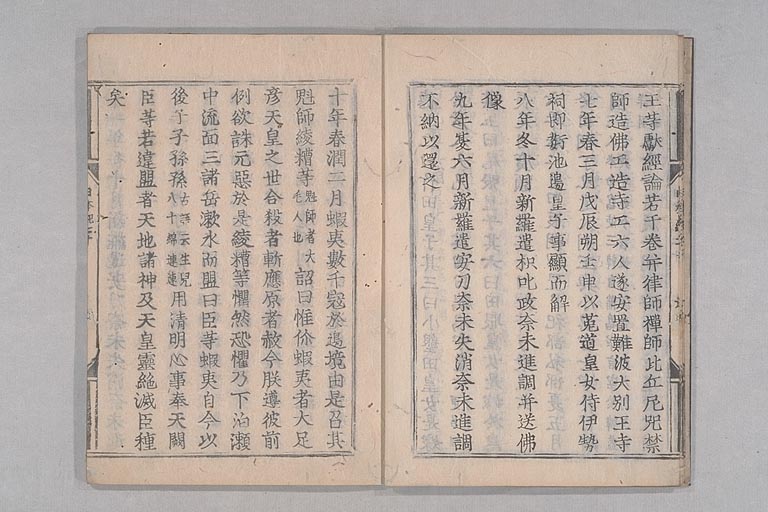 王等獻經論若干卷并律師禪師比丘尼咒禁
師造佛工造寺工六人遂安置難波大別王寺
七年春三月戊辰朔壬申以菟道皇女侍伊勢
祠即奸池邊皇子事顯而解
八年冬十月新羅遣枳叱政奈末進調并送佛
像
九年夏六月新羅遣安刀奈末失消奈末進調
不納以還之
十年春潤二月蝦夷數千寇於邊境由是召其
魁師綾糟等魁師者大毛人也詔曰惟你蝦夷者大足
彦天皇之世合殺者斬應原者赦今朕遵彼前
例欲誅元惡於是綾糟等懼然恐懼乃下泊瀬
中流面三諸岳漱水而盟曰臣等蝦夷自今以
後子子孫孫古語云生兒八十綿連用清明心事奉天闕
臣等若違盟者天地諸神及天皇靈絶滅臣種
矣